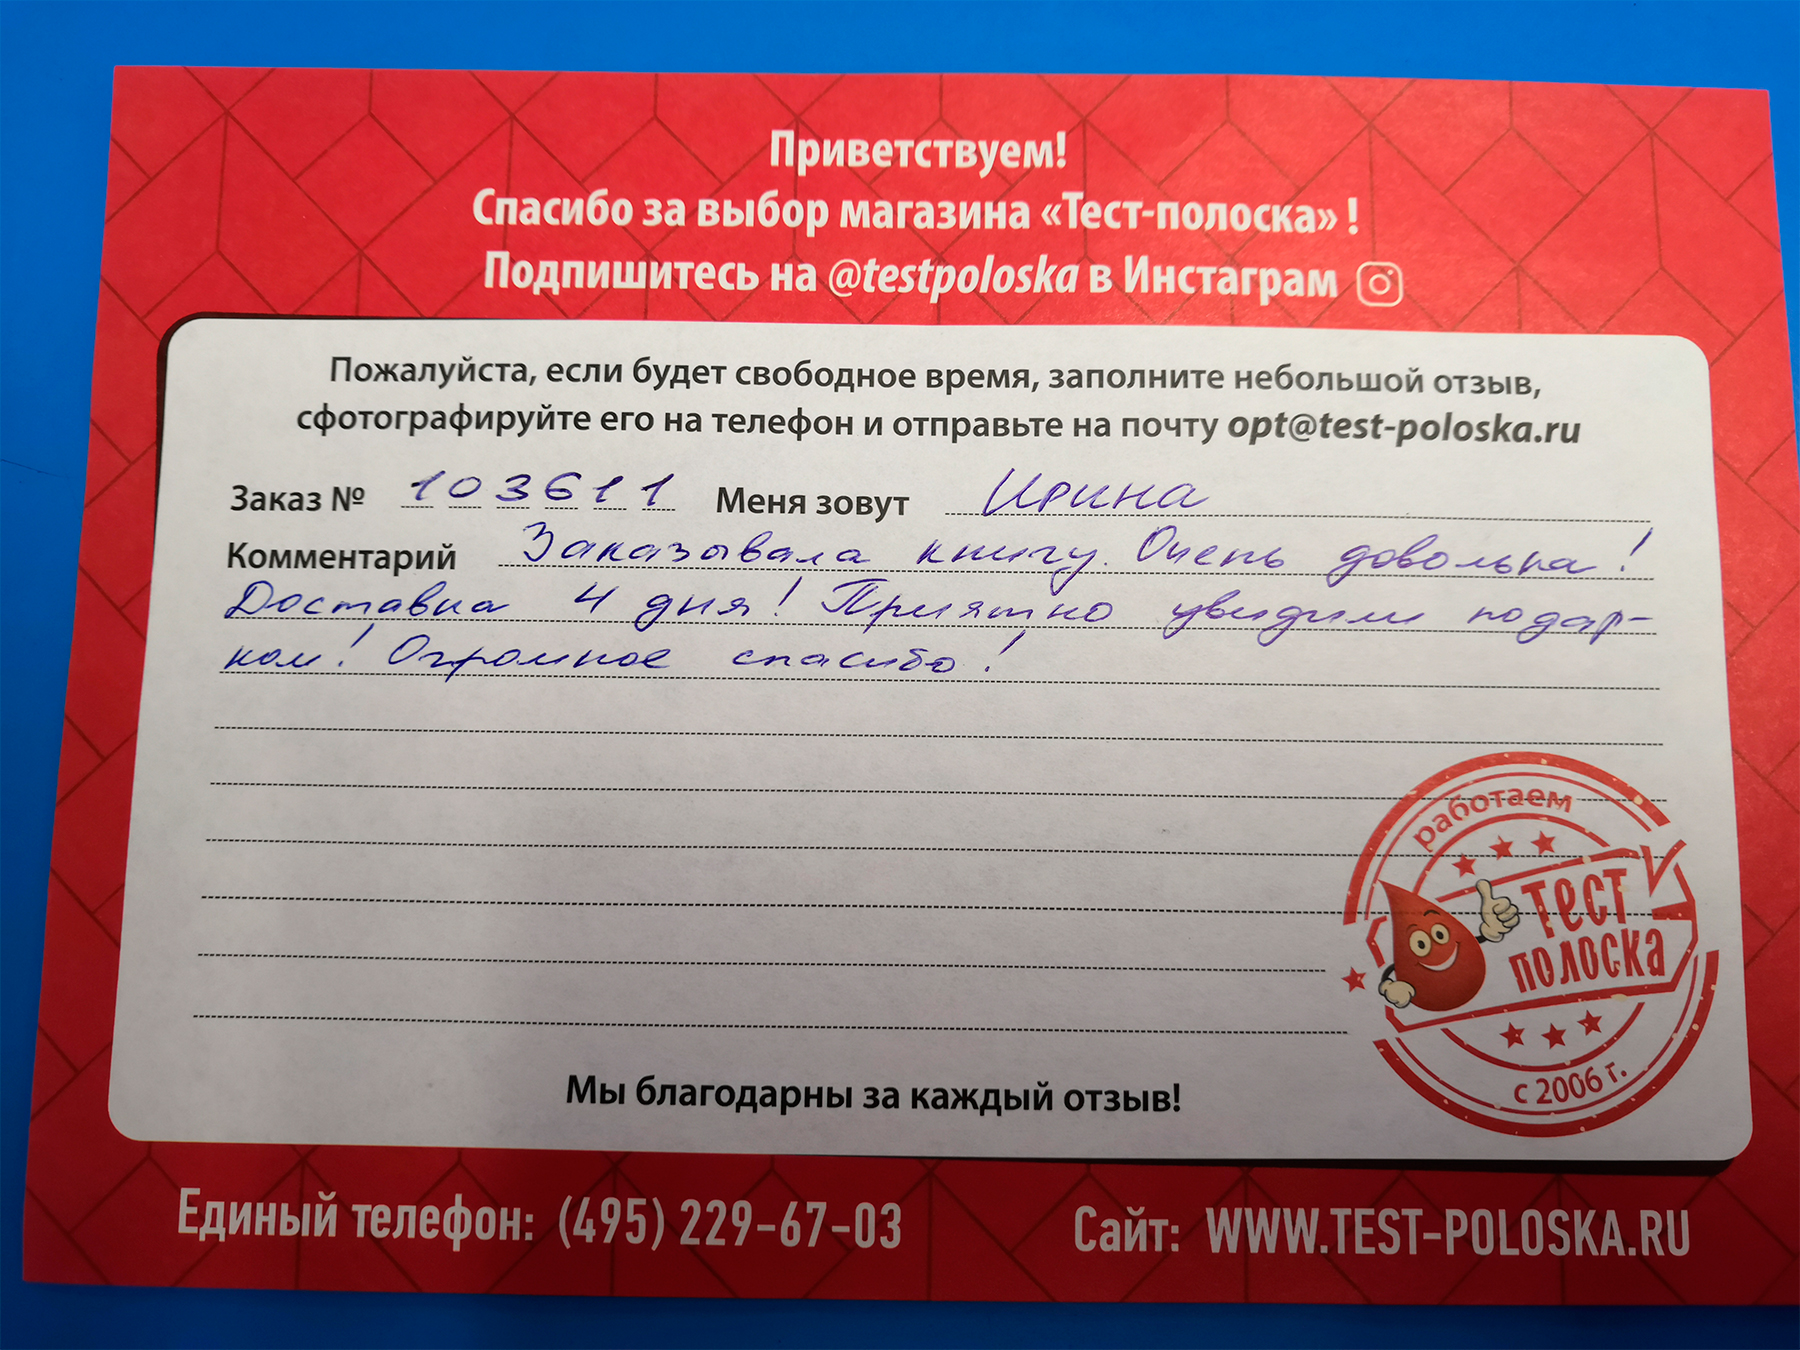 Приветствуем!
Спасибо за выбор магазина «Тест-полоска» !
Подпишитесь на @testpoloska в Инстаграм
Пожалуйста, если будет свободное время, заполните небольшой отзыв,
сфотографируйте его на телефон и отправьте на почту opt@test-poloska.ru
Заказ № 103611 Меня зовут Ирина
Комментарий Заказывала книгу. Очень довольна!
Доставка 4 дня! Приятно удивили подар-
ком! Огромное спасибо!
работаем
ТЕСТ
ПОЛОСКА
с 2006 г.
Мы благодарны за каждый отзыв!
Единый телефон: (495) 229-67-03 Сайт: WWW.TEST-POLOSKA.RU